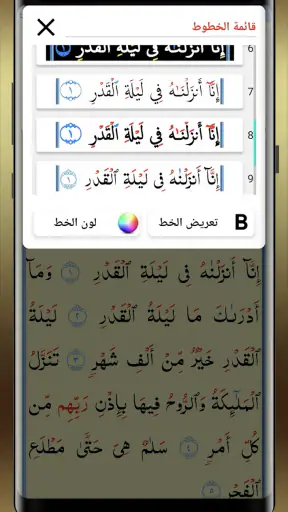 قائمة الخطوط
6 إِنَّآ أَنزَلْنَـٰهُ فِي لَيْلَةِ ٱلْقَدْرِ ١
7 إِنَّآ أَنزَلْنَـٰهُ فِي لَيْلَةِ ٱلْقَدْرِ ١
8 إِنَّآ أَنزَلْنَـٰهُ فِي لَيْلَةِ ٱلْقَدْرِ ١
9 إِنَّآ أَنزَلْنَـٰهُ فِي لَيْلَةِ ٱلْقَدْرِ ١
B تعريض الخط لون الخط
إِنَّآ أَنزَلْنَـٰهُ فِى لَيْلَةِ ٱلْقَدْرِ ١ وَمَآ
أَدْرَىٰكَ مَا لَيْلَةُ ٱلْقَدْرِ ٢ لَيْلَةُ
ٱلْقَدْرِ خَيْرٌ مِّنْ أَلْفِ شَهْرٍ ٣ تَنَزَّلُ
ٱلْمَلَـٰٓئِكَةُ وَٱلرُّوحُ فِيهَا بِإِذْنِ رَبِّهِم مِّن
كُلِّ أَمْرٍ ٤ سَلَـٰمٌ هِىَ حَتَّىٰ مَطْلَعِ
ٱلْفَجْرِ ٥